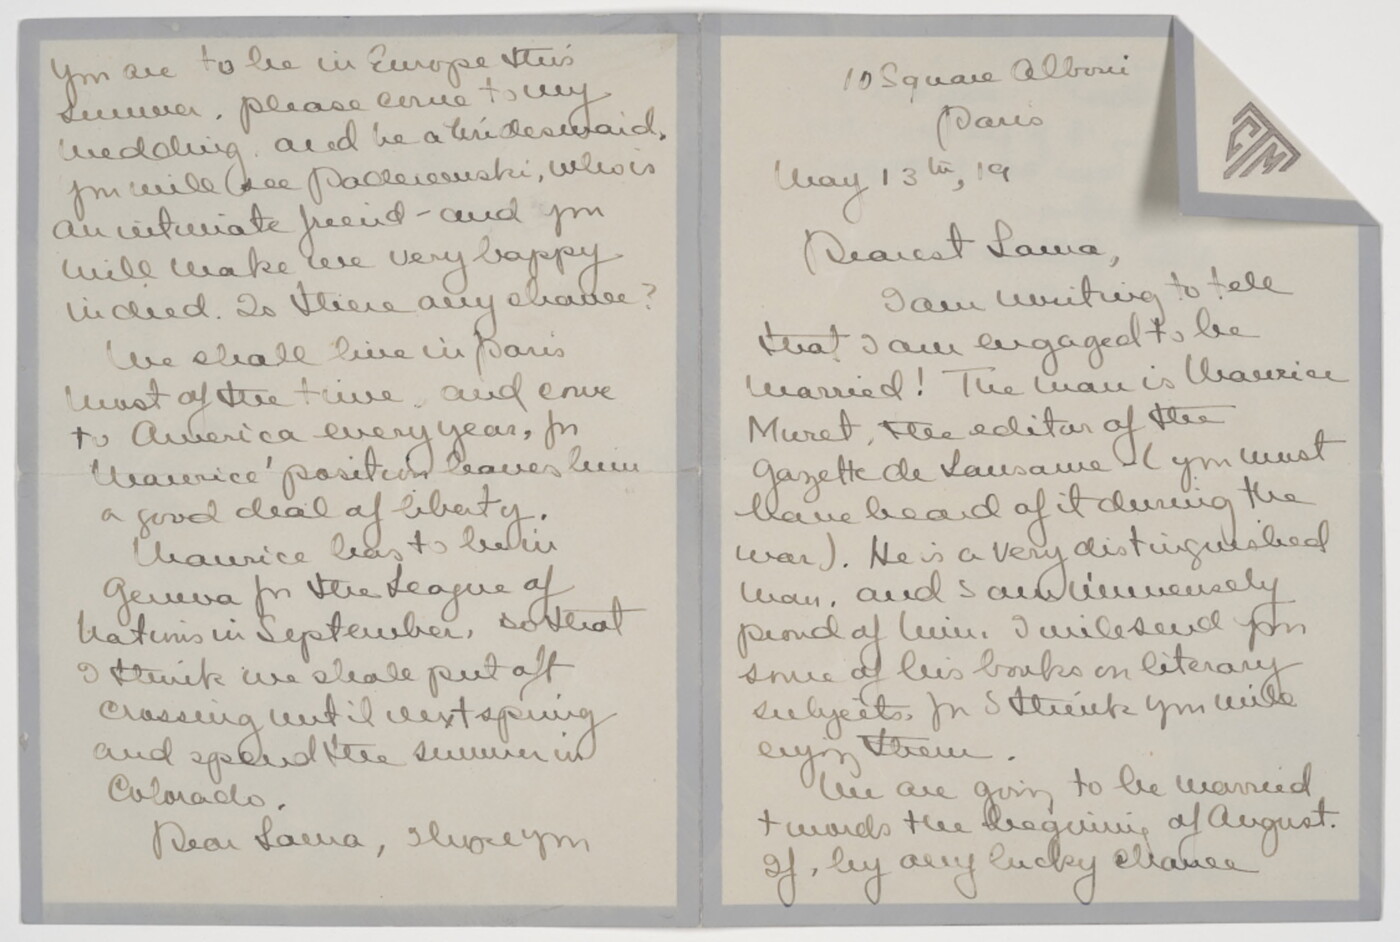 10 Square Alboni
Paris
May 13th, 19
Dearest Lama,
I am writing to tell
that I am engaged to be
married! The man is Maurice
Muret, the editor of the
Gazette de Lausanne - (you must
have heard of it during the
war). He is a very distinguished
man, and I am immensely
proud of him. I will send you
some of his books on literary
subjects, for I think you will
enjoy them.
We are going to be married
towards the beginning of August.
If, by any lucky chance
you are to be in Europe this
summer, please come to my
wedding, and be a bridesmaid,
you will see Paderewski, who is
an intimate friend - and you
will make me very happy
indeed. Is there any chance?
We shall live in Paris
most of the time, and come
to America every year, for
Maurice' position leaves him
a good deal of liberty.
Maurice has to be in
Geneva for the League of
Nations in September, so that
I think we shall put off
crossing until next spring
and spend the summer in
Colorado.
Dear Lama, I hope you